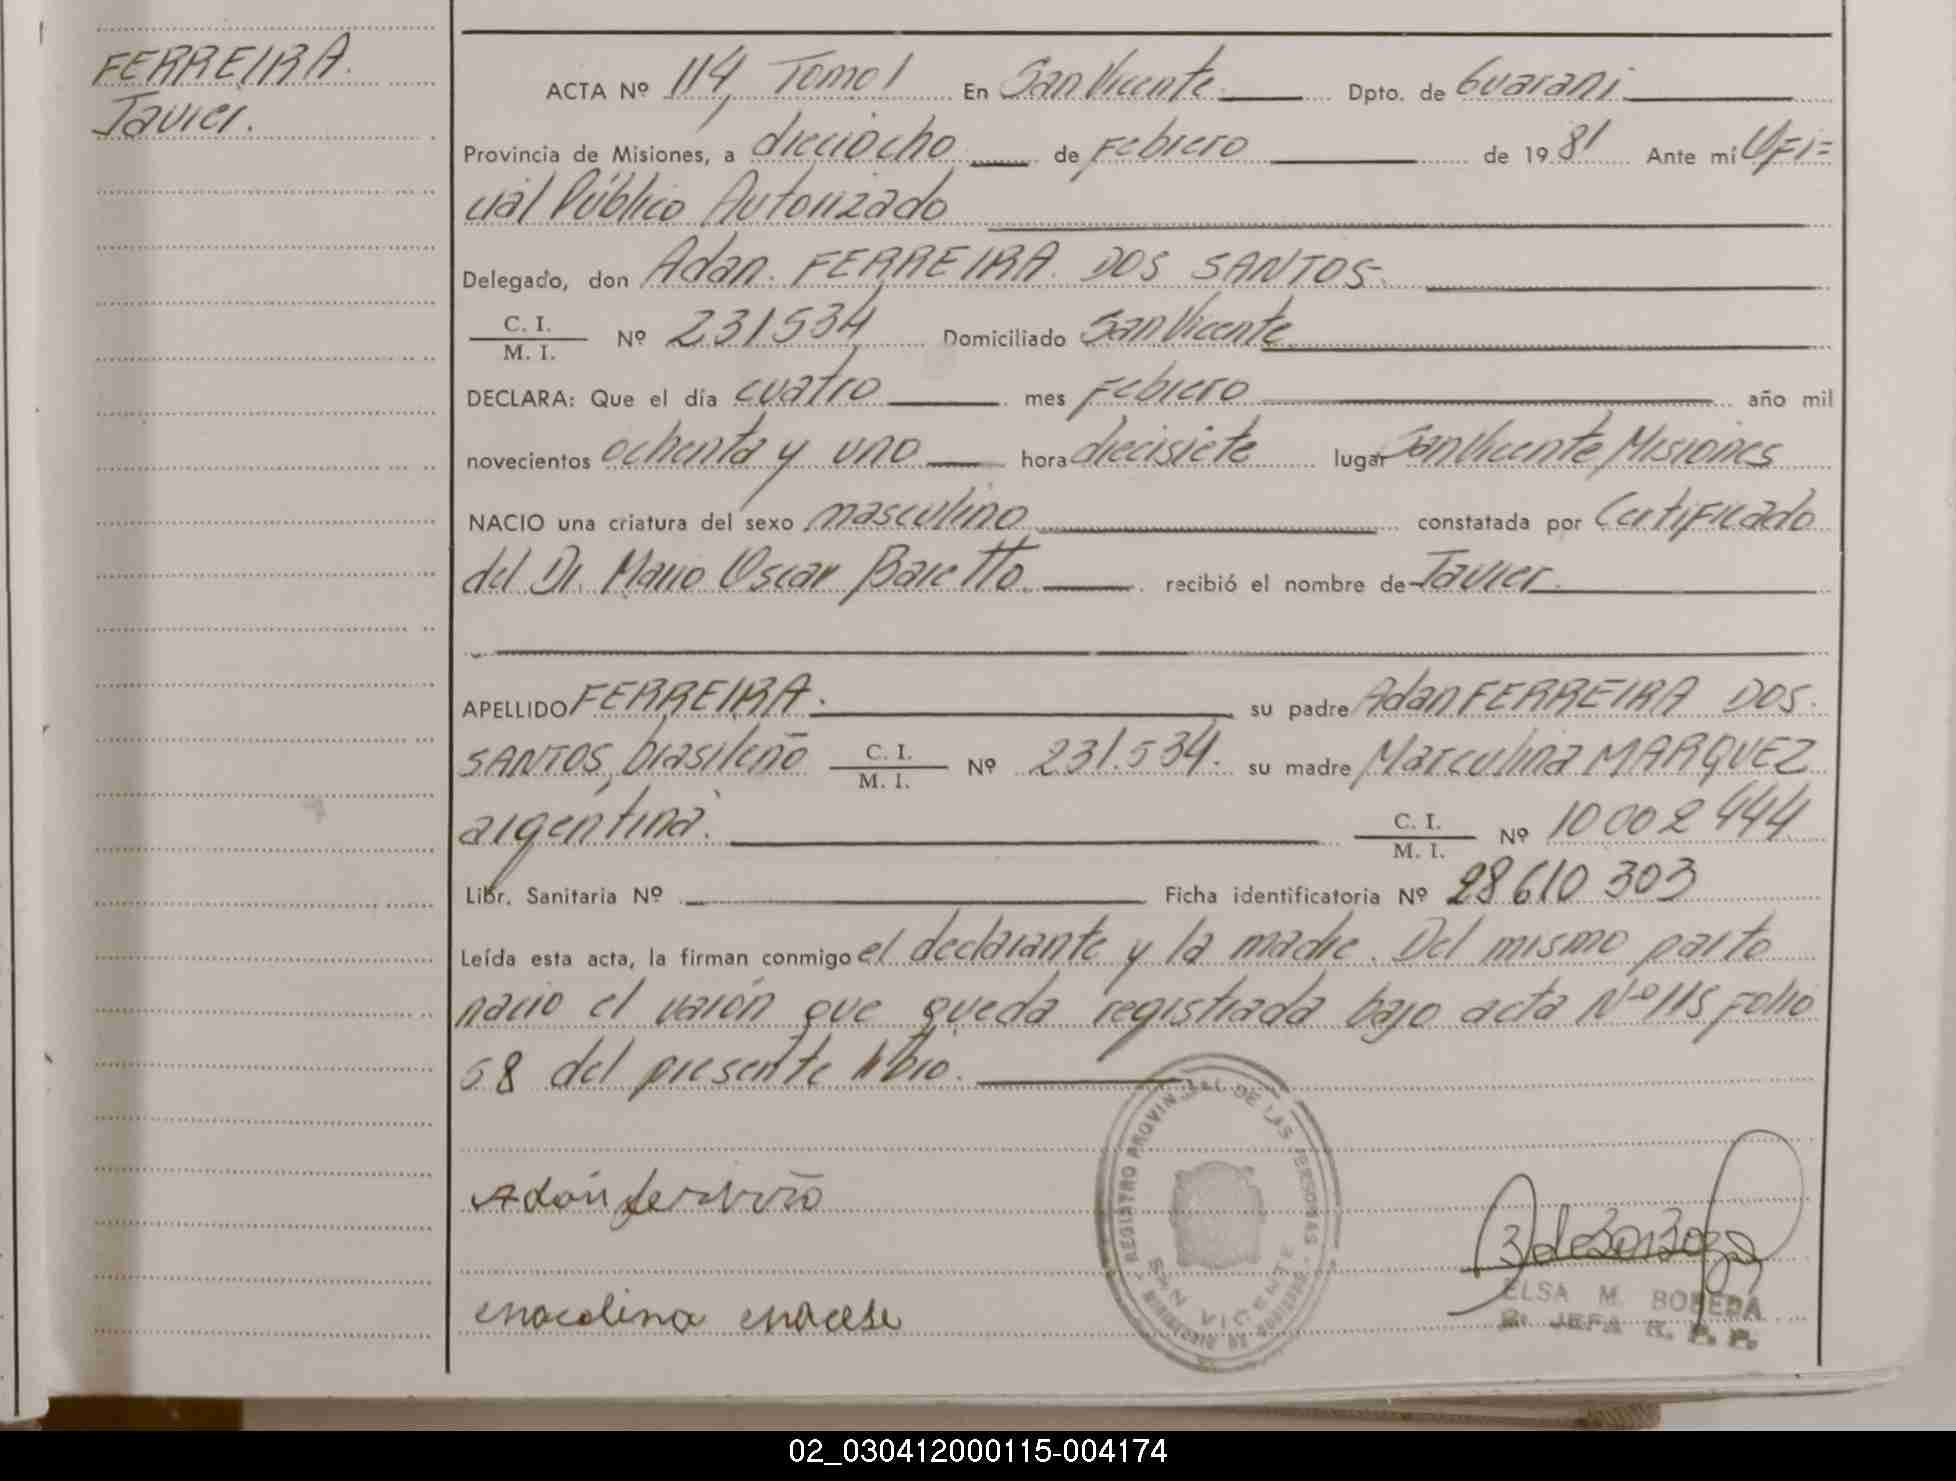 FERREIRA.
Javier.
ACTA Nº 114, Tomo I En San Vicente Dpto. de Guarani
Provincia de Misiones, a dieciocho de Febrero de 1981 Ante mí Ofi=
cial Público Autorizado
Delegado, don Adan. FERREIRA DOS SANTOS-
C. I.
M. I. Nº 231534 Domiciliado San Vicente
DECLARA: Que el día cuatro mes Febrero año mil
novecientos ochenta y uno hora diecisiete lugar San Vicente Misiones
NACIO una criatura del sexo masculino constatada por Certificado
del Dr. Mario Oscar Baretto. recibió el nombre de Javier.
APELLIDO FERREIRA. su padre Adan FERREIRA DOS
SANTOS, brasileño C. I.
M. I. Nº 231.534. su madre Marculina MARQUEZ
argentina. C. I.
M. I. Nº 10002444
Libr. Sanitaria Nº Ficha identificatoria Nº 28610303
Leída esta acta, la firman conmigo el declarante y la madre. Del mismo parto
nacio el varón que queda registrada bajo acta Nº 115 Folio
58 del presente libro.
REGISTRO PROVINCIAL DE LAS PERSONAS
SAN VICENTE
Adán
ELSA M. BOBEDA
JEFA R. P. P.
02_030412000115-004174